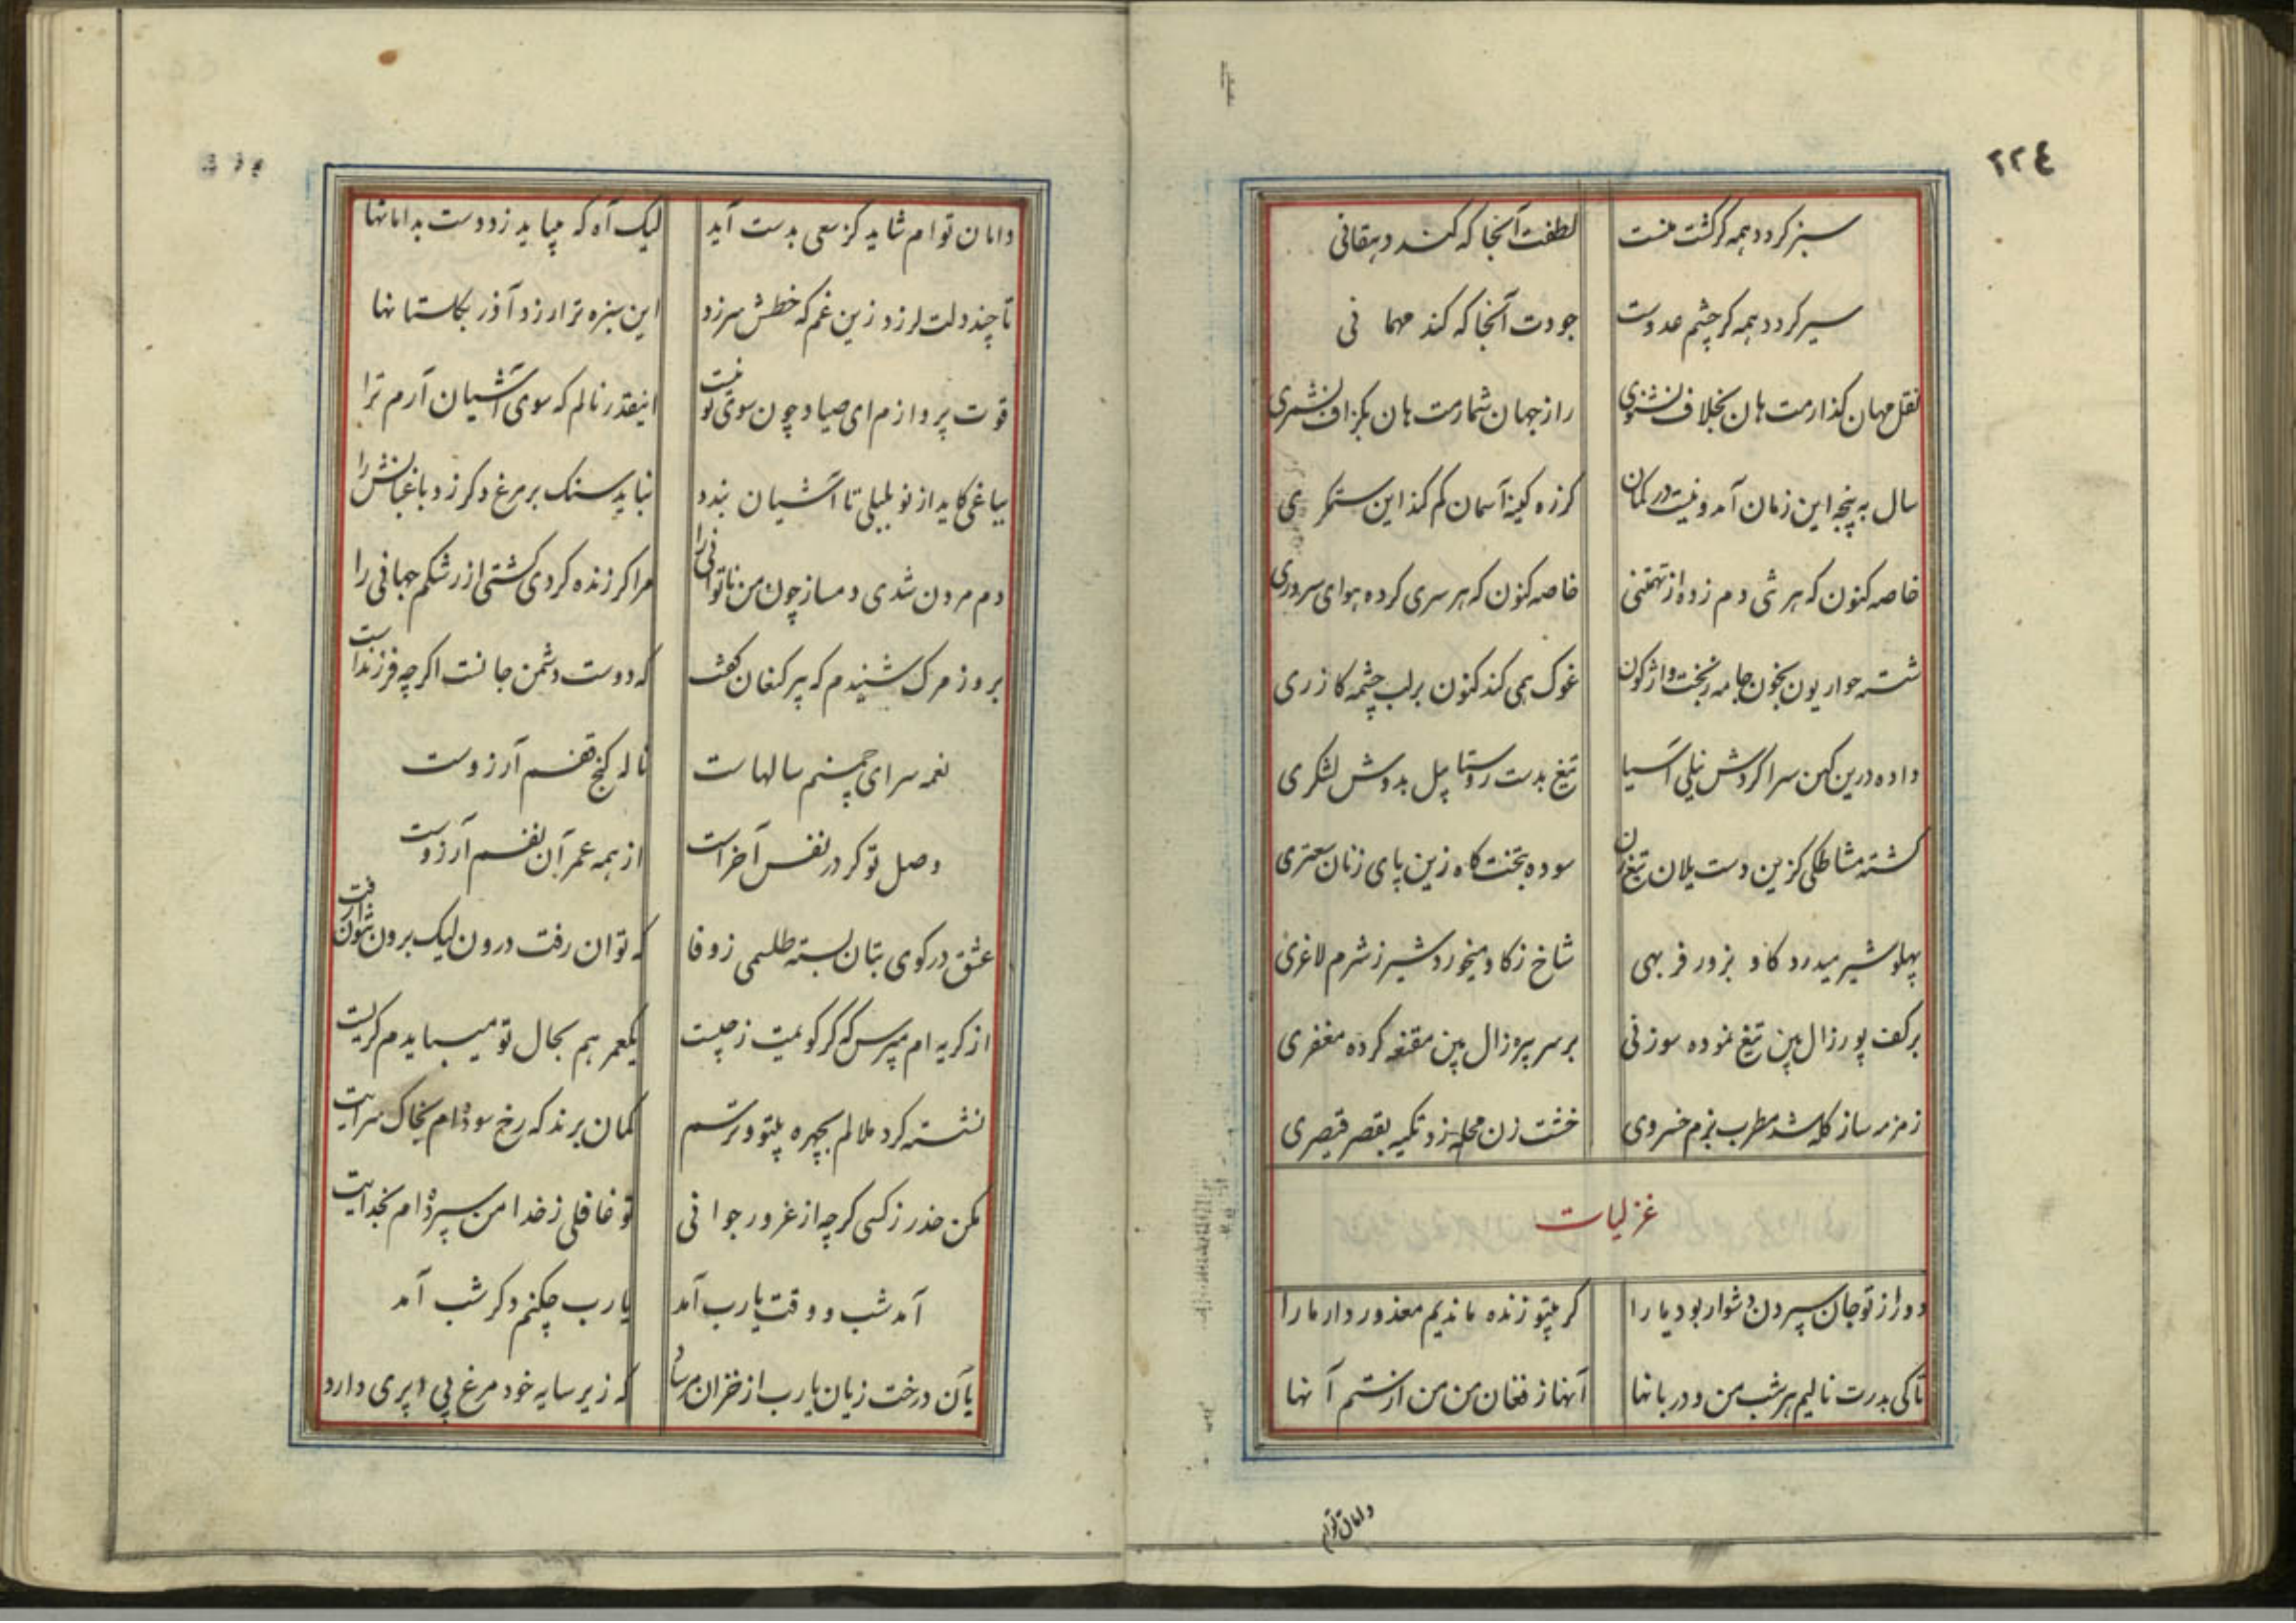 ٢٢٤
سبز کردد همه کر کشت منست لطفت آنجا که کند دهقانی
سیر کردد همه کر چشم عدوست جودت آنجا که کند مهمانی
نقل مهان کذارمت هان بخلاف نشنوی راز جهان شمارمت هان بکزاف نشمری
سال به پنجه این زمان آمد و نیست در کمان کرزه کینه آسمان کم کند این ستمکری
خاصه کنون که هر شی دم زده از تهمتنی خاصه کنون که هر سری کرده هوای سروری
شسته حواریون بخون جامه ز بخت واژکون غوک همی کند کنون بر لب چشمه کازری
داده درین کهن سرا کردش نیلی آسیا تیغ بدست روستا بیل بدوش لشکری
کشته مشاطکی کزین دست یلان تیغ زن سوده بتخت کاه زین پای زنان سعتری
پهلو شیر میدرد کاو بزور فربهی شاخ ز کاو میخورد شیر ز شرم لاغری
بر کف پور زال بین تیغ نموده سوزنی بر سر پیره زال بین مقنعه کرده مغفری
زمزمه ساز کله شد مطرب بزم خسروی خشت زن محله زد تکیه بقصر قیصری
غزلیات
دور از تو جان سپردن دشوار بود یما را کر بیتو زنده ماندیم معذور دار ما را
تا کی بدرت نالیم هر شب من و دربانها آنها ز فغان من من از ستم آنها
دامان توام
دامان توام شاید کز سعی بدست آید لیک آه که میباید زد دست بدامانها
تا چند دلت لرزد زین غم که خطش سر زد این سبزه تر ارزد آذر بکلستانها
قوت پروازم ای صیاد چون سوی تو نیست اینقدر نالم که سوی آشیان آرم ترا
بباغی کاید از نو بلبلی تا آشیان بندد نباید سنک بر مرغ دکر زد باغبانش را
دم مردن شدی دمساز چون من ناتوانی را مرا کر زنده کردی کشتی از رشکم جهانی را
بروز مرک شنیدم که پیر کنعان کفت که دوست دشمن جانست اکرچه فرزند است
نغمه سرای چمنم سالهاست ناله کنج قفسم آرزوست
وصل تو کر در نفس آخر است از همه عمر آن نفسم آرزوست
عشق در کوی بتان بسته طلسمی ز وفا که توان رفت درون لیک برون نتوان رفت
از کریه ام مپرس که کر کویمت ز چیست یکعمر هم بحال تو میبایدم کریست
نشسته کرد ملالم بچهره بیتو و ترسم کمان برند که رخ سوده ام بخاک سرایت
مکن حذر ز کسی کرچه از غرور جوانی تو غافلی ز خدا من سپرده ام بخدایت
آمد شب و وقت یارب آمد یارب چکنم دکر شب آمد
بآن درخت زیان یارب از خزان مرساد که زیر سایه خود مرغ بی پری دارد